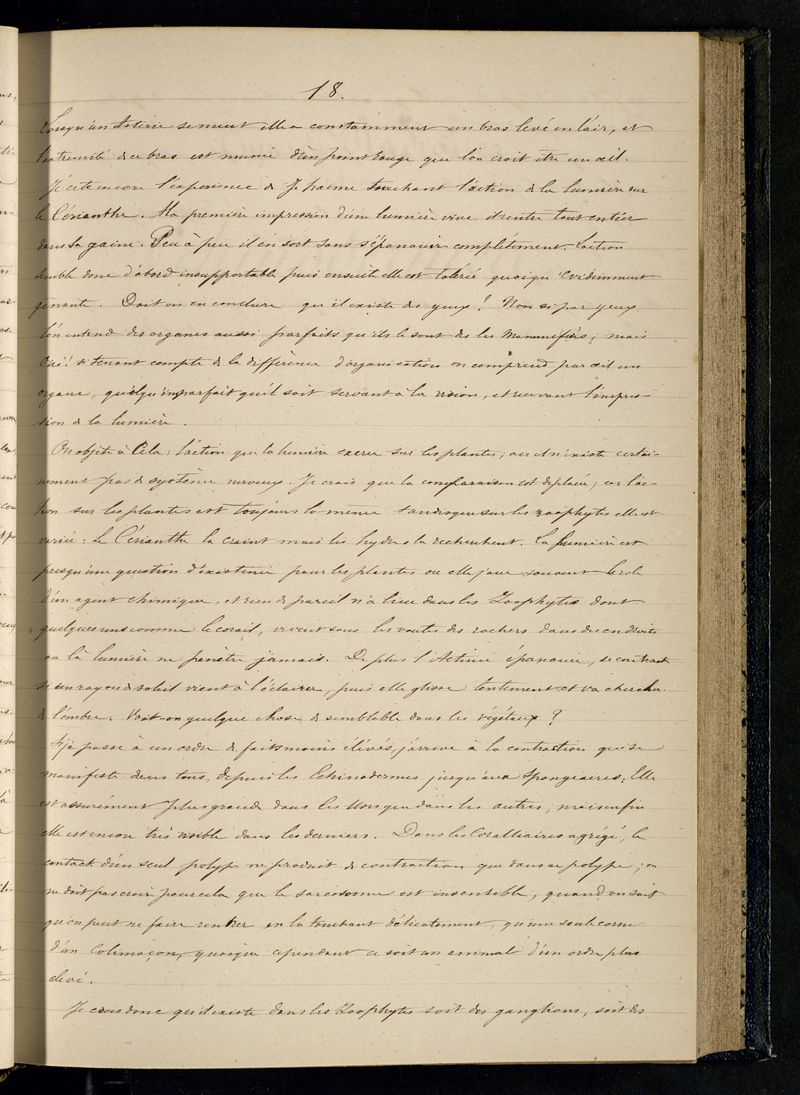 18.
Lorsqu'un Astérie se meut elle a constamment un bras levé en l'air, et
l'extremité de ce bras est munie d'un point rouge que l'on croit etre un œil.
Je cite encore l'experience de touchant l'action de la lumière sur
le Cérianthe. Ma première impression d'une lumière vive rentre tout entier
dans sa gaine. Peu à peu il en sort sans s'épanouir complétement. L'action
semble donc d'abord insupportable puis ensuite elle est tolérée quoique evidemment
gênante. Doit on en conclure qu'il existe des yeux? Non si par yeux
l'on entend des organes aussi parfaits qu'ils le sont ches les Mammifères; mais
Oui! si tenant compte de la différence d'organisation on comprend par œil un
organe, quelqu'imparfait qu'il soit servant à la vision, et recevant l'impres-
sion de la lumière.
On objete à Cela, l'action que la lumière exerce sur les plantes; ou il n'existe certai-
nement pas de système nerveux. Je crois que la comparaison est déplacée; car l'ac-
tion sur les plantes est toujours la même tandisque sur les zoophytes elle est
variée: le Cérianthe la craint mais les hydres la recherchent. La lumière est
presqu'une question d'existence pour les plantes ou elle joue souvent le role
d'un agent chimique, et rien de pareil n'a lieu dans les Zoophytes dont
quelques uns comme le corail, vivent sous les voutes des rochers dans des endroits
ou la lumière ne penètre jamais. De plus l'Actinie épanouie, se contracte
si un rayon de soleil vient à l'éclairer, puis elle glisse lentement et va chercher
de l'ombre. Voit-on quelque chose de semblable dans les végétaux?
Si je passe à un ordre de faits moins élévés, j'arrive à la contraction qui se
manifeste dans tous, depuis les Echinodermes jusqu'aux Spongiaires; Elle
est assurément plus grande dans les uns que dans les autres; mais enfin
elle est encore très visible dans les derniers. Dans les Coralliaires agrégé, le
contact d'un seul polype ne produit de contraction que dans ce polype; on
ne doit pas croire pour cela que le sarcosome est insensible, quand on sait
qu'on peut ne faire rentrer en la touchant délicatement, qu'une seule corne
d'un Colimaçon, quoique cependant ce soit un animal d'un ordre plus
élevé.
Je crois donc qu'il existe dans les Zoophytes soit des ganglions, soit des